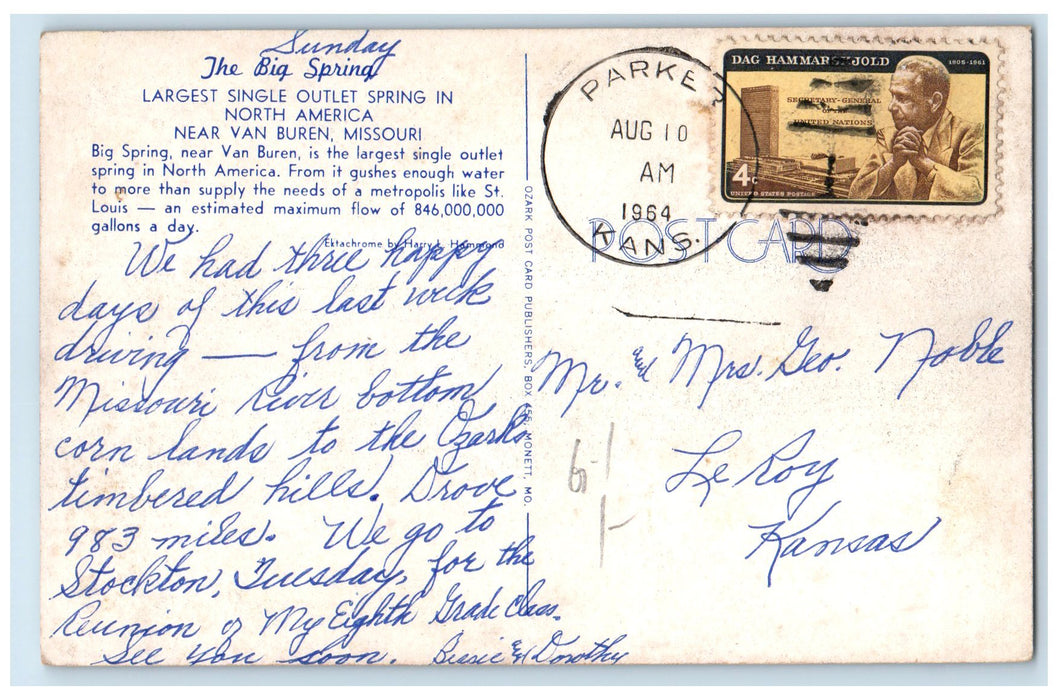 Sunday
The Big Spring
LARGEST SINGLE OUTLET SPRING IN
NORTH AMERICA
NEAR VAN BUREN, MISSOURI
Big Spring, near Van Buren, is the largest single outlet
spring in North America. From it gushes enough water
to more than supply the needs of a metropolis like St.
Louis — an estimated maximum flow of 846,000,000
gallons a day.
Ektachrome by Harry L. Hammond
We had three happy
days of this last week
driving — from the
Missouri River bottom
corn lands to the Ozarks
timbered hills. Drove
983 miles. We go to
Stockton, Tuesday, for the
Reunion of My Eighth Grade Class.
See you soon. Bessie & Dorothy
OZARK POST CARD PUBLISHERS, BOX 456, MONETT, MO.
PARKER
AUG 10
AM
1964
KANS.
DAG HAMMARSKJOLD 1905-1961
SECRETARY-GENERAL
OF THE
UNITED NATIONS
4c
UNITED STATES POSTAGE
POST CARD
Mr. and Mrs. Geo. Noble
Le Roy
Kansas